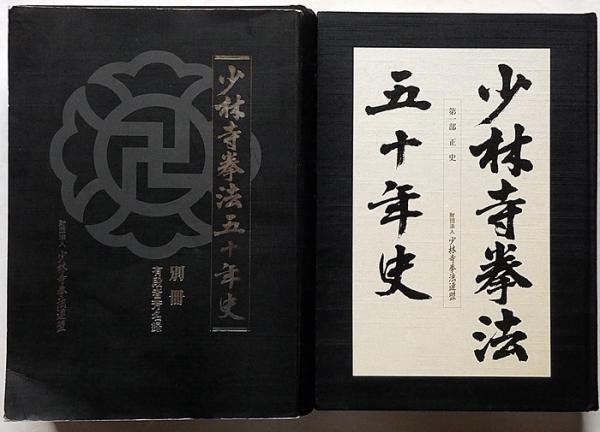 少林寺拳法五十年史
別冊
有段者芳名録
財団法人 少林寺拳法連盟
少林寺拳法
五十年史
第一部 正史
財団法人 少林寺拳法連盟